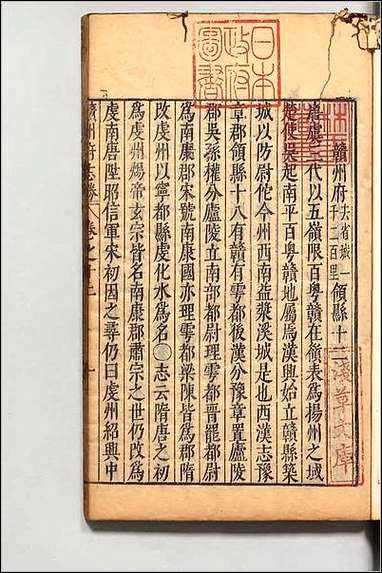 日本政府圖書
贛州府 去省城一千二百里 領縣十二
唐虞三代以五嶺限百粵贛在嶺表為揚州之域
楚使吳起南平百粵贛地屬焉漢興始立贛縣築
城以防尉佗今州西南益漿溪城是也西漢志豫
章郡領縣十八有贛有雩都後漢分豫章置廬陵
郡吳孫權分廬陵立南部都尉理雩都晉罷都尉
為南康郡宋號南康國亦理雩都梁陳皆為郡隋
改虔州以寧都縣虔化水為名○志云隋唐之初
為虔州煬帝玄宗皆名南康郡肅宗之世仍改為
虔南唐陞昭信軍宋初因之尋仍曰虔州紹興中
淺草文庫